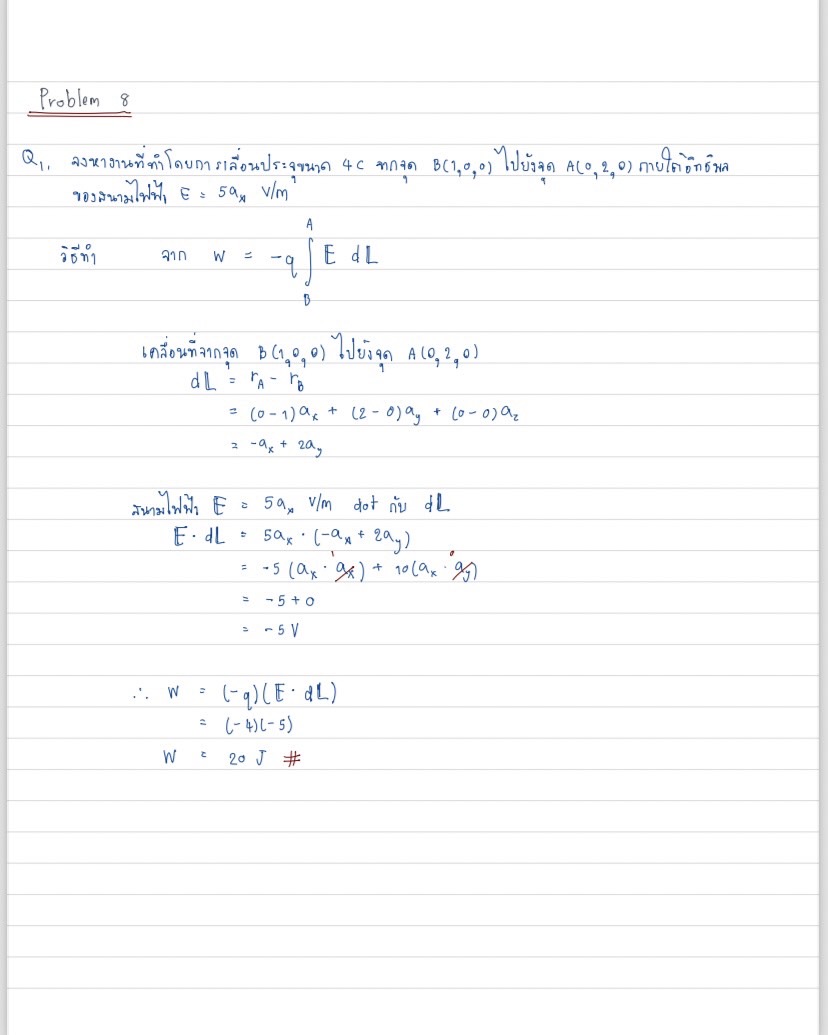 Problem 8
Q1. จงหางานที่ทำโดยการเลื่อนประจุขนาด 4C จากจุด B(1,0,0) ไปยังจุด A(0,2,0) ภายใต้อิทธิพล
ของสนามไฟฟ้า E = 5aₓ V/m
A
วิธีทำ จาก W = -q ∫ E dL
B
เคลื่อนที่จากจุด B(1,0,0) ไปยังจุด A(0,2,0)
dL = r_A - r_B
= (0-1)aₓ + (2-0)a_y + (0-0)a_z
= -aₓ + 2a_y
สนามไฟฟ้า E = 5aₓ V/m dot กับ dL
E · dL = 5aₓ · (-aₓ + 2a_y)
1 0
= -5 (aₓ · aₓ) + 10(aₓ · a_y)
= -5+0
= -5 V
∴ W = (-q)(E · dL)
= (-4)(-5)
W = 20 J #